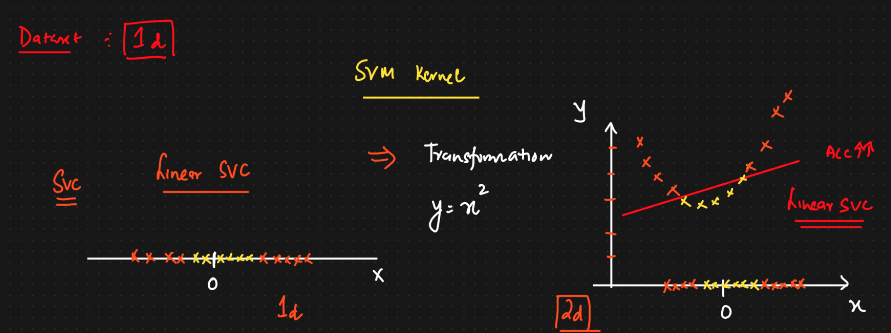 Dataset : 1d
SVM Kernel
SVC
Linear SVC
⇒ Transformation
y = x²
0
x
1d
y
Acc ↑↑
Linear SVC
2d
0
x